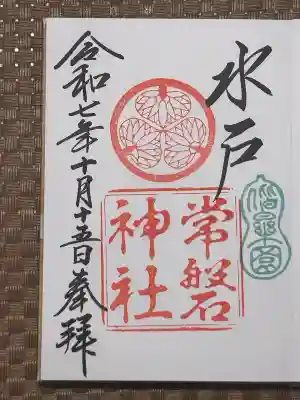 水戸
常磐
神社
偕楽園
令和七年十月十五日奉拝